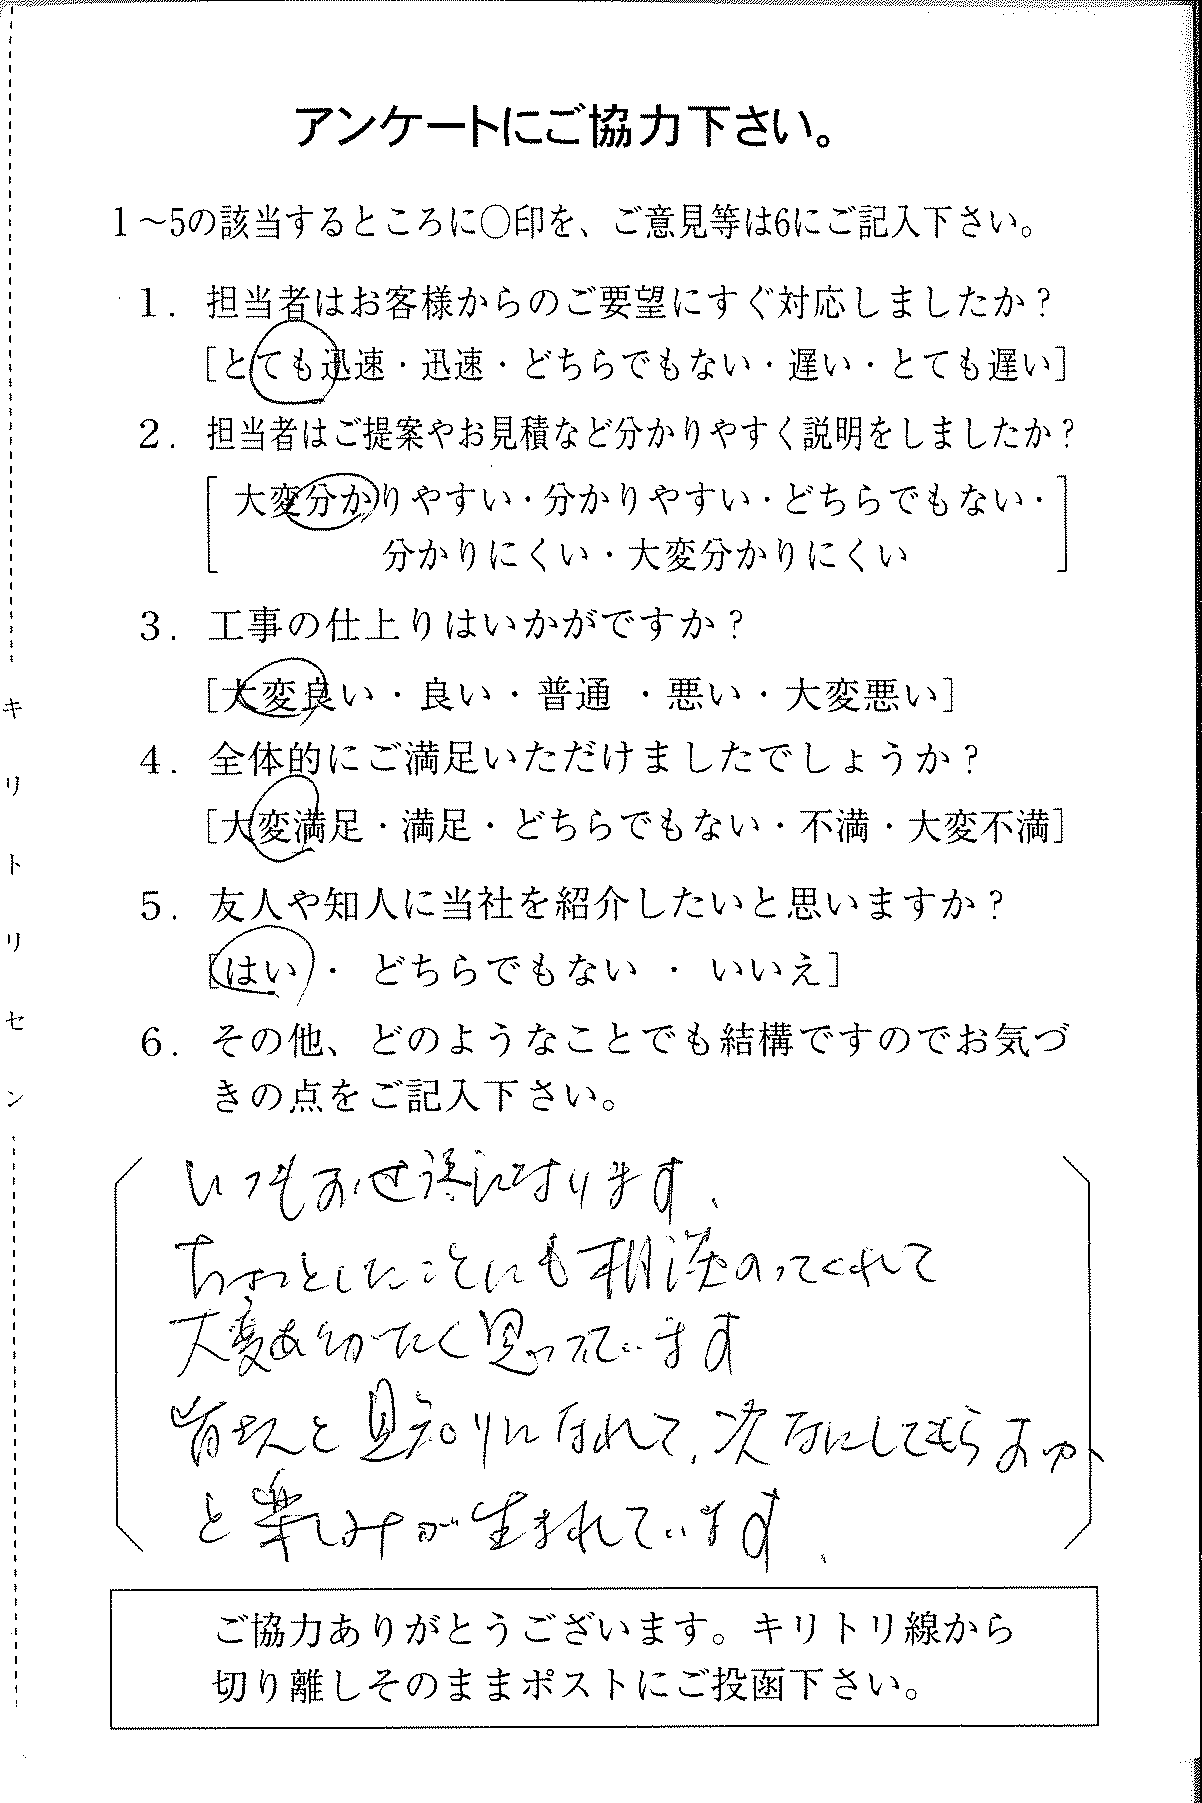 アンケートにご協力下さい。
1～5の該当するところに○印を、ご意見等は6にご記入下さい。
1. 担当者はお客様からのご要望にすぐ対応しましたか？
[とても迅速・迅速・どちらでもない・遅い・とても遅い]
2. 担当者はご提案やお見積など分かりやすく説明をしましたか？
[大変分かりやすい・分かりやすい・どちらでもない・
分かりにくい・大変分かりにくい]
3. 工事の仕上りはいかがですか？
[大変良い・良い・普通・悪い・大変悪い]
4. 全体的にご満足いただけましたでしょうか？
[大変満足・満足・どちらでもない・不満・大変不満]
5. 友人や知人に当社を紹介したいと思いますか？
[はい・どちらでもない・いいえ]
6. その他、どのようなことでも結構ですのでお気づ
きの点をご記入下さい。
いつもお世話になります、
ちょっとしたことにも相談のってくれて
大変ありがたく思っています
皆さんと見知りになれて、次なにしてもらおうか、
と楽しみが生まれています、
ご協力ありがとうございます。キリトリ線から
切り離しそのままポストにご投函下さい。
キリトリセン